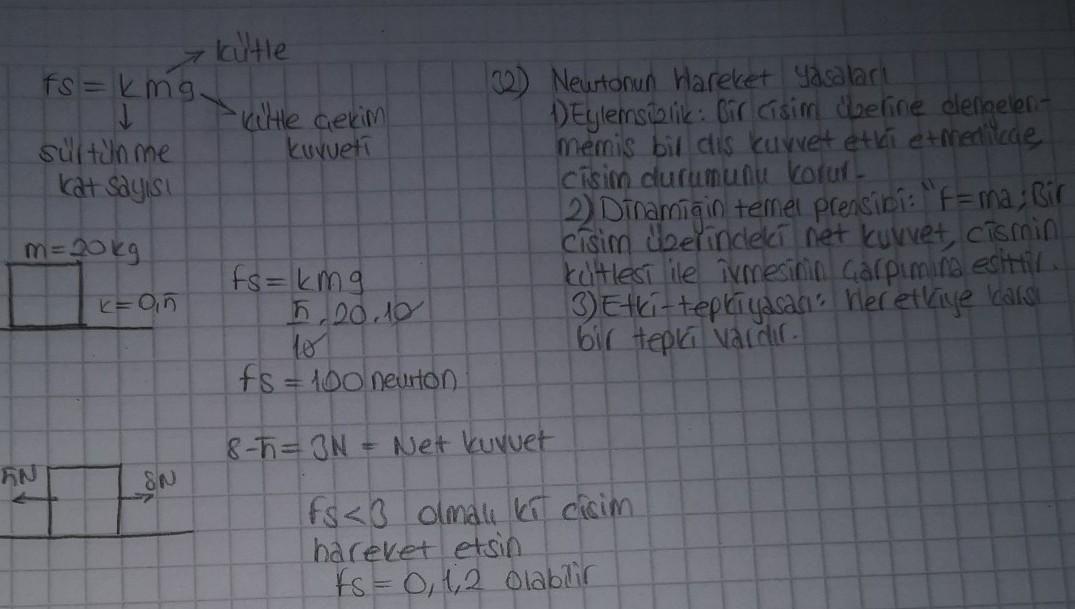 kütle
fs = kmg
kütle çekim
kuvveti
sürtünme
kat sayısı
m=20kg
k=0,5
fs = kmg
5.20.10
10
fs = 100 newton
8-5= 3N = Net kuvvet
5N
8N
fs<3 olmalı ki cisim
hareket etsin
fs = 0,1,2 olabilir
32) Newtonun Hareket yasaları
1) Eylemsizlik: Bir cisim üzerine dengelen-
memis bir dıs kuvvet etki etmedikçe
cisim durumunu korur.
2) Dinamigin temel prensibi: "F=ma; Bir
cisim üzerindeki net kuvvet, cismin
kütlesi ile ivmesinin çarpımına esittir.
3) Etki-tepki yasası: Her etkiye karsı
bir tepki vardır.